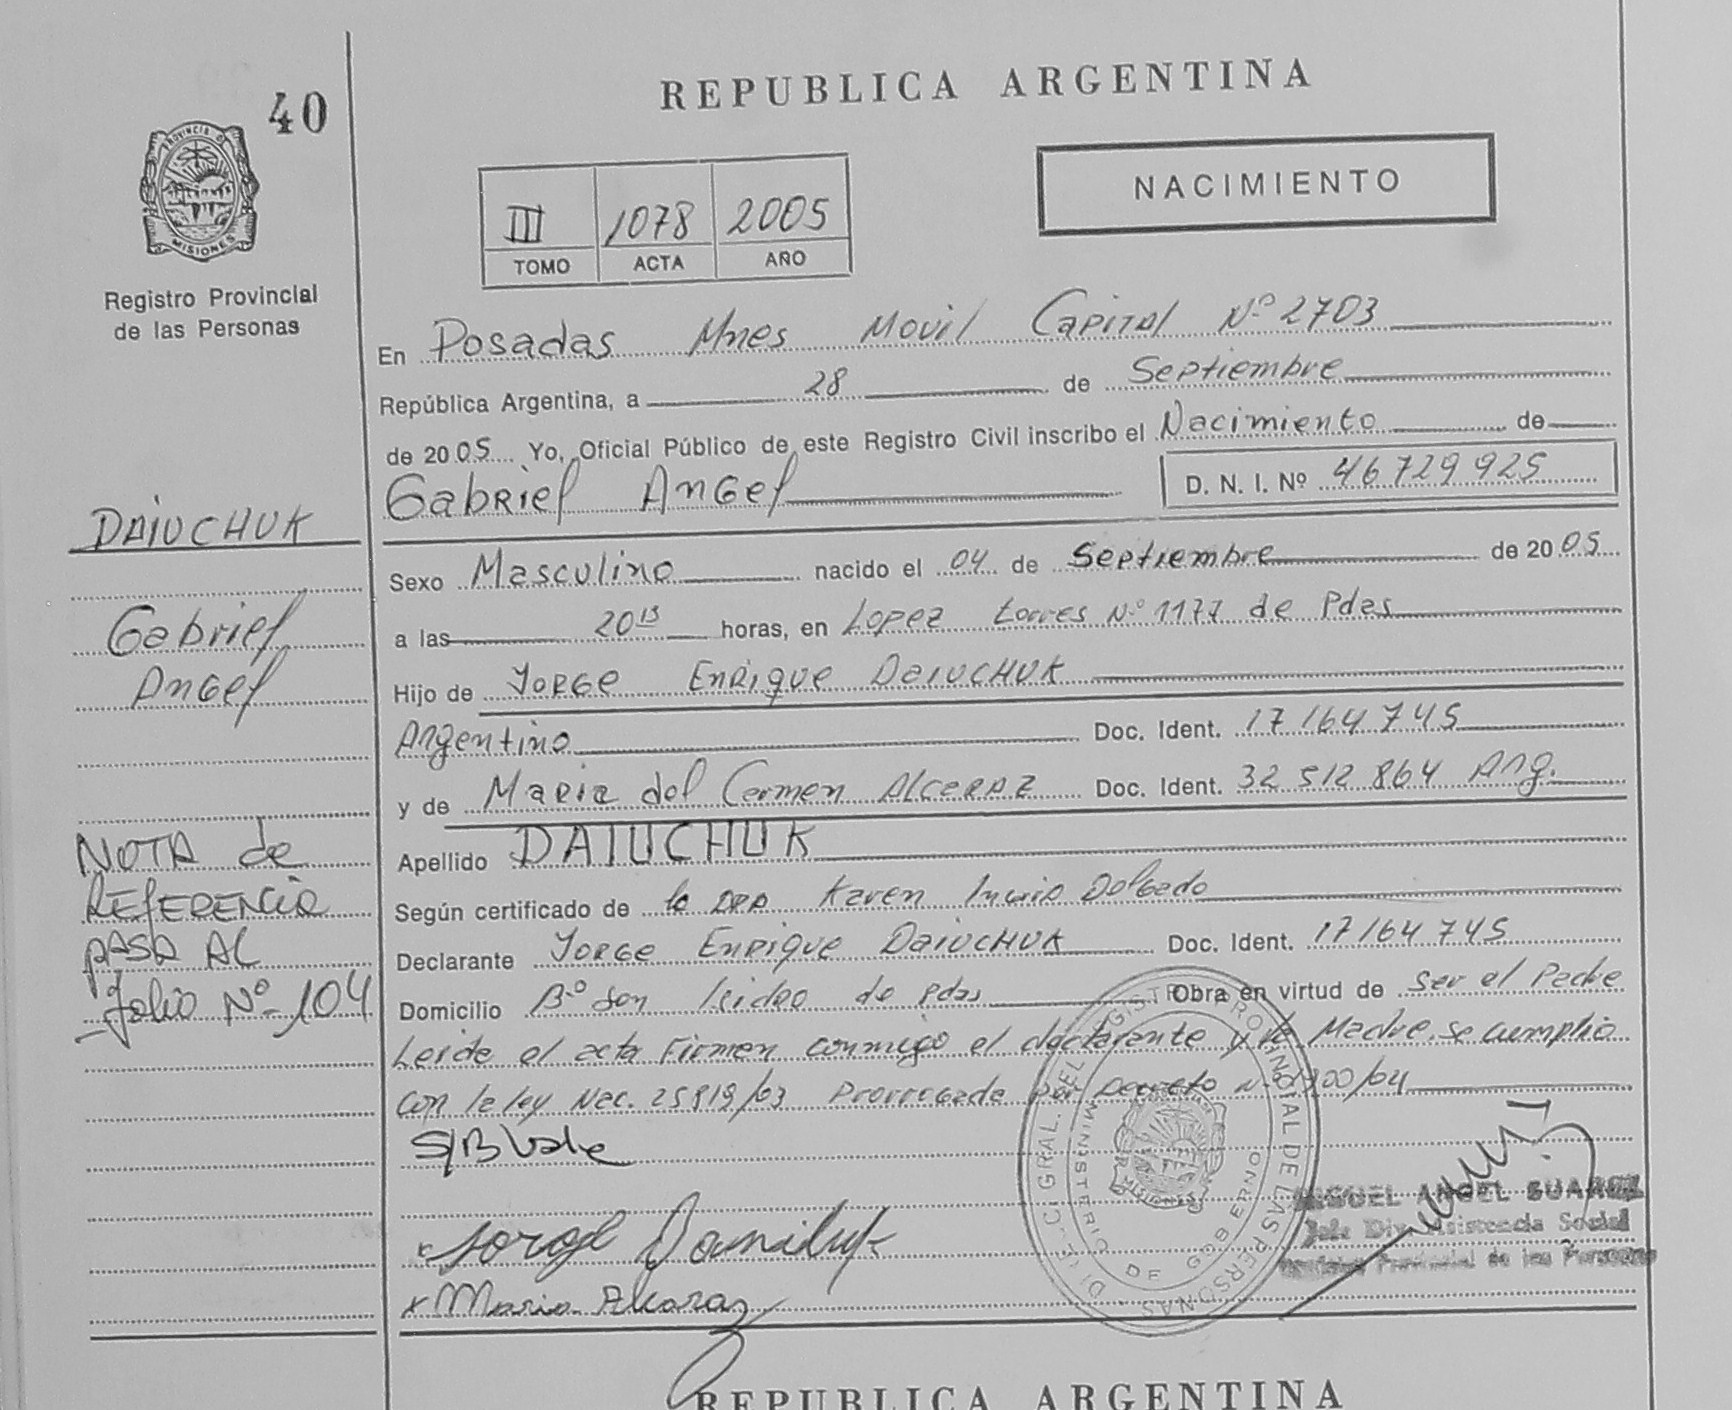 REPUBLICA ARGENTINA
40
PROVINCIA DE
MISIONES
Registro Provincial
de las Personas
III 1078 2005
TOMO ACTA AÑO
NACIMIENTO
En Posadas Mnes Movil Capital Nº 2703
República Argentina, a 28 de Septiembre
de 2005 Yo, Oficial Público de este Registro Civil inscribo el Nacimiento de
Gabriel Angel D. N. I. Nº 46729925
Sexo Masculino nacido el 04 de Septiembre de 2005
a las 20 15 horas, en Lopez torres Nº 1177 de Pdas
Hijo de Jorge Enrique Daiuchuk
Argentino Doc. Ident. 17164745
y de Maria del Carmen Alcaraz Doc. Ident. 32 512 864 Arg.
Apellido DAIUCHUK
Según certificado de la DRA Karen Delgado
Declarante Jorge Enrique Daiuchuk Doc. Ident. 17164745
Domicilio Bº San Isidro de Pdas Obra en virtud de ser el Padre
Leida el acta Firman conmigo el declarante y la Madre. se cumplio
con la ley Nac. 25819/03 Prorrogada por Decreto Nº 1700/04
S/B Vale
x Jorge
x Maria Alcaraz
DAIUCHUK
Gabriel
Angel
NOTA de
REFERENCIA
PASA AL
folio Nº 104
DIREC. GRAL. DEL REGISTRO PROVINCIAL DE LAS PERSONAS
MINISTERIO DE GOBIERNO
MISIONES
MIGUEL ANGEL SUAREZ
Jefe Div. Asistencia Social
Registro Provincial de las Personas
REPUBLICA ARGENTINA